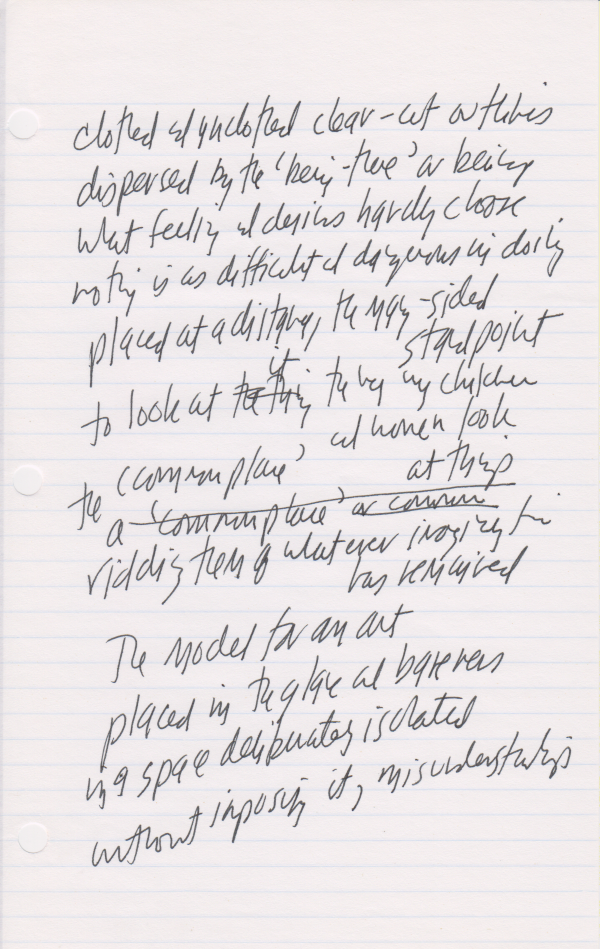 clothed and unclothed clear-cut outlines
dispersed by the 'being-there' or being
what feeling and desires hardly choose
nothing is as difficult and dangerous in doing
placed at a distance, the many-sided
standpoint
it
to look at the thing the way my children
and women look
the 'commonplace'
at things
a 'commonplace' or common
ridding them of whatever
has remained
The model for an art
placed in the glare and bareness
in a space deliberately isolated
without imposing it, misunderstandings